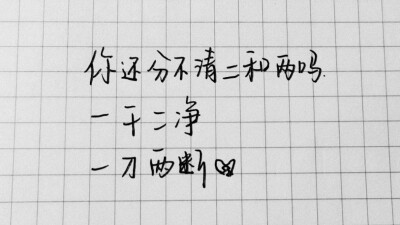 你还分不清二和两吗
一干二净
一刀两断